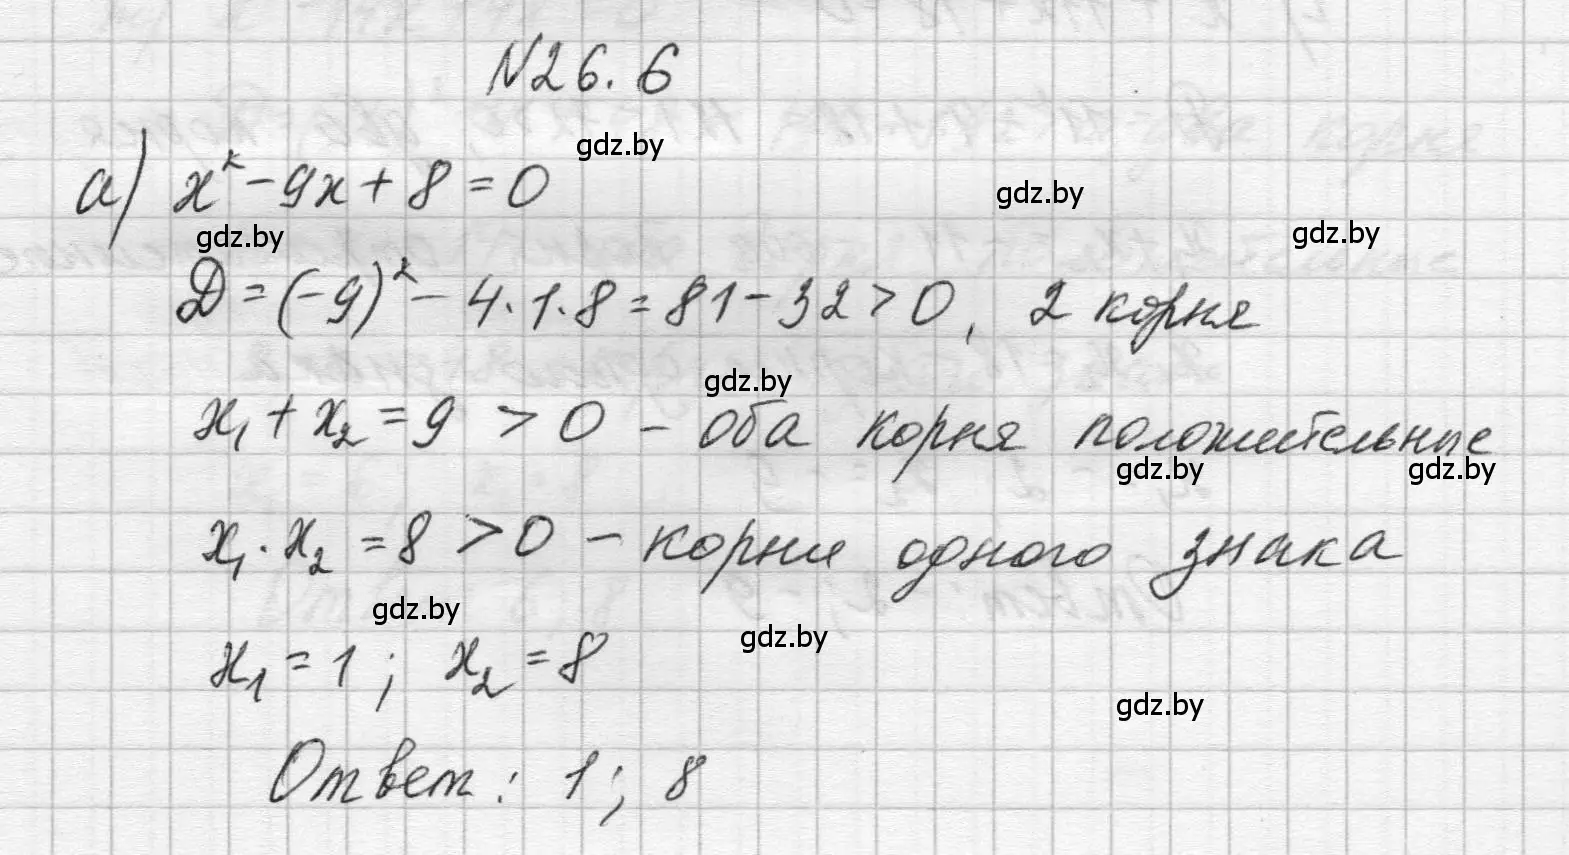 N26.6
gdz.by
а) x² - 9x + 8 = 0
gdz.by
gdz.by
gdz.by
Д = (-9)² - 4·1·8 = 81 - 32 > 0, 2 корня
gdz.by
x₁ + x₂ = 9 > 0 - оба корня положительные
gdz.by
gdz.by
x₁ · x₂ = 8 > 0 - корни одного знака
gdz.by
gdz.by
x₁ = 1; x₂ = 8
gdz.by
Ответ: 1; 8